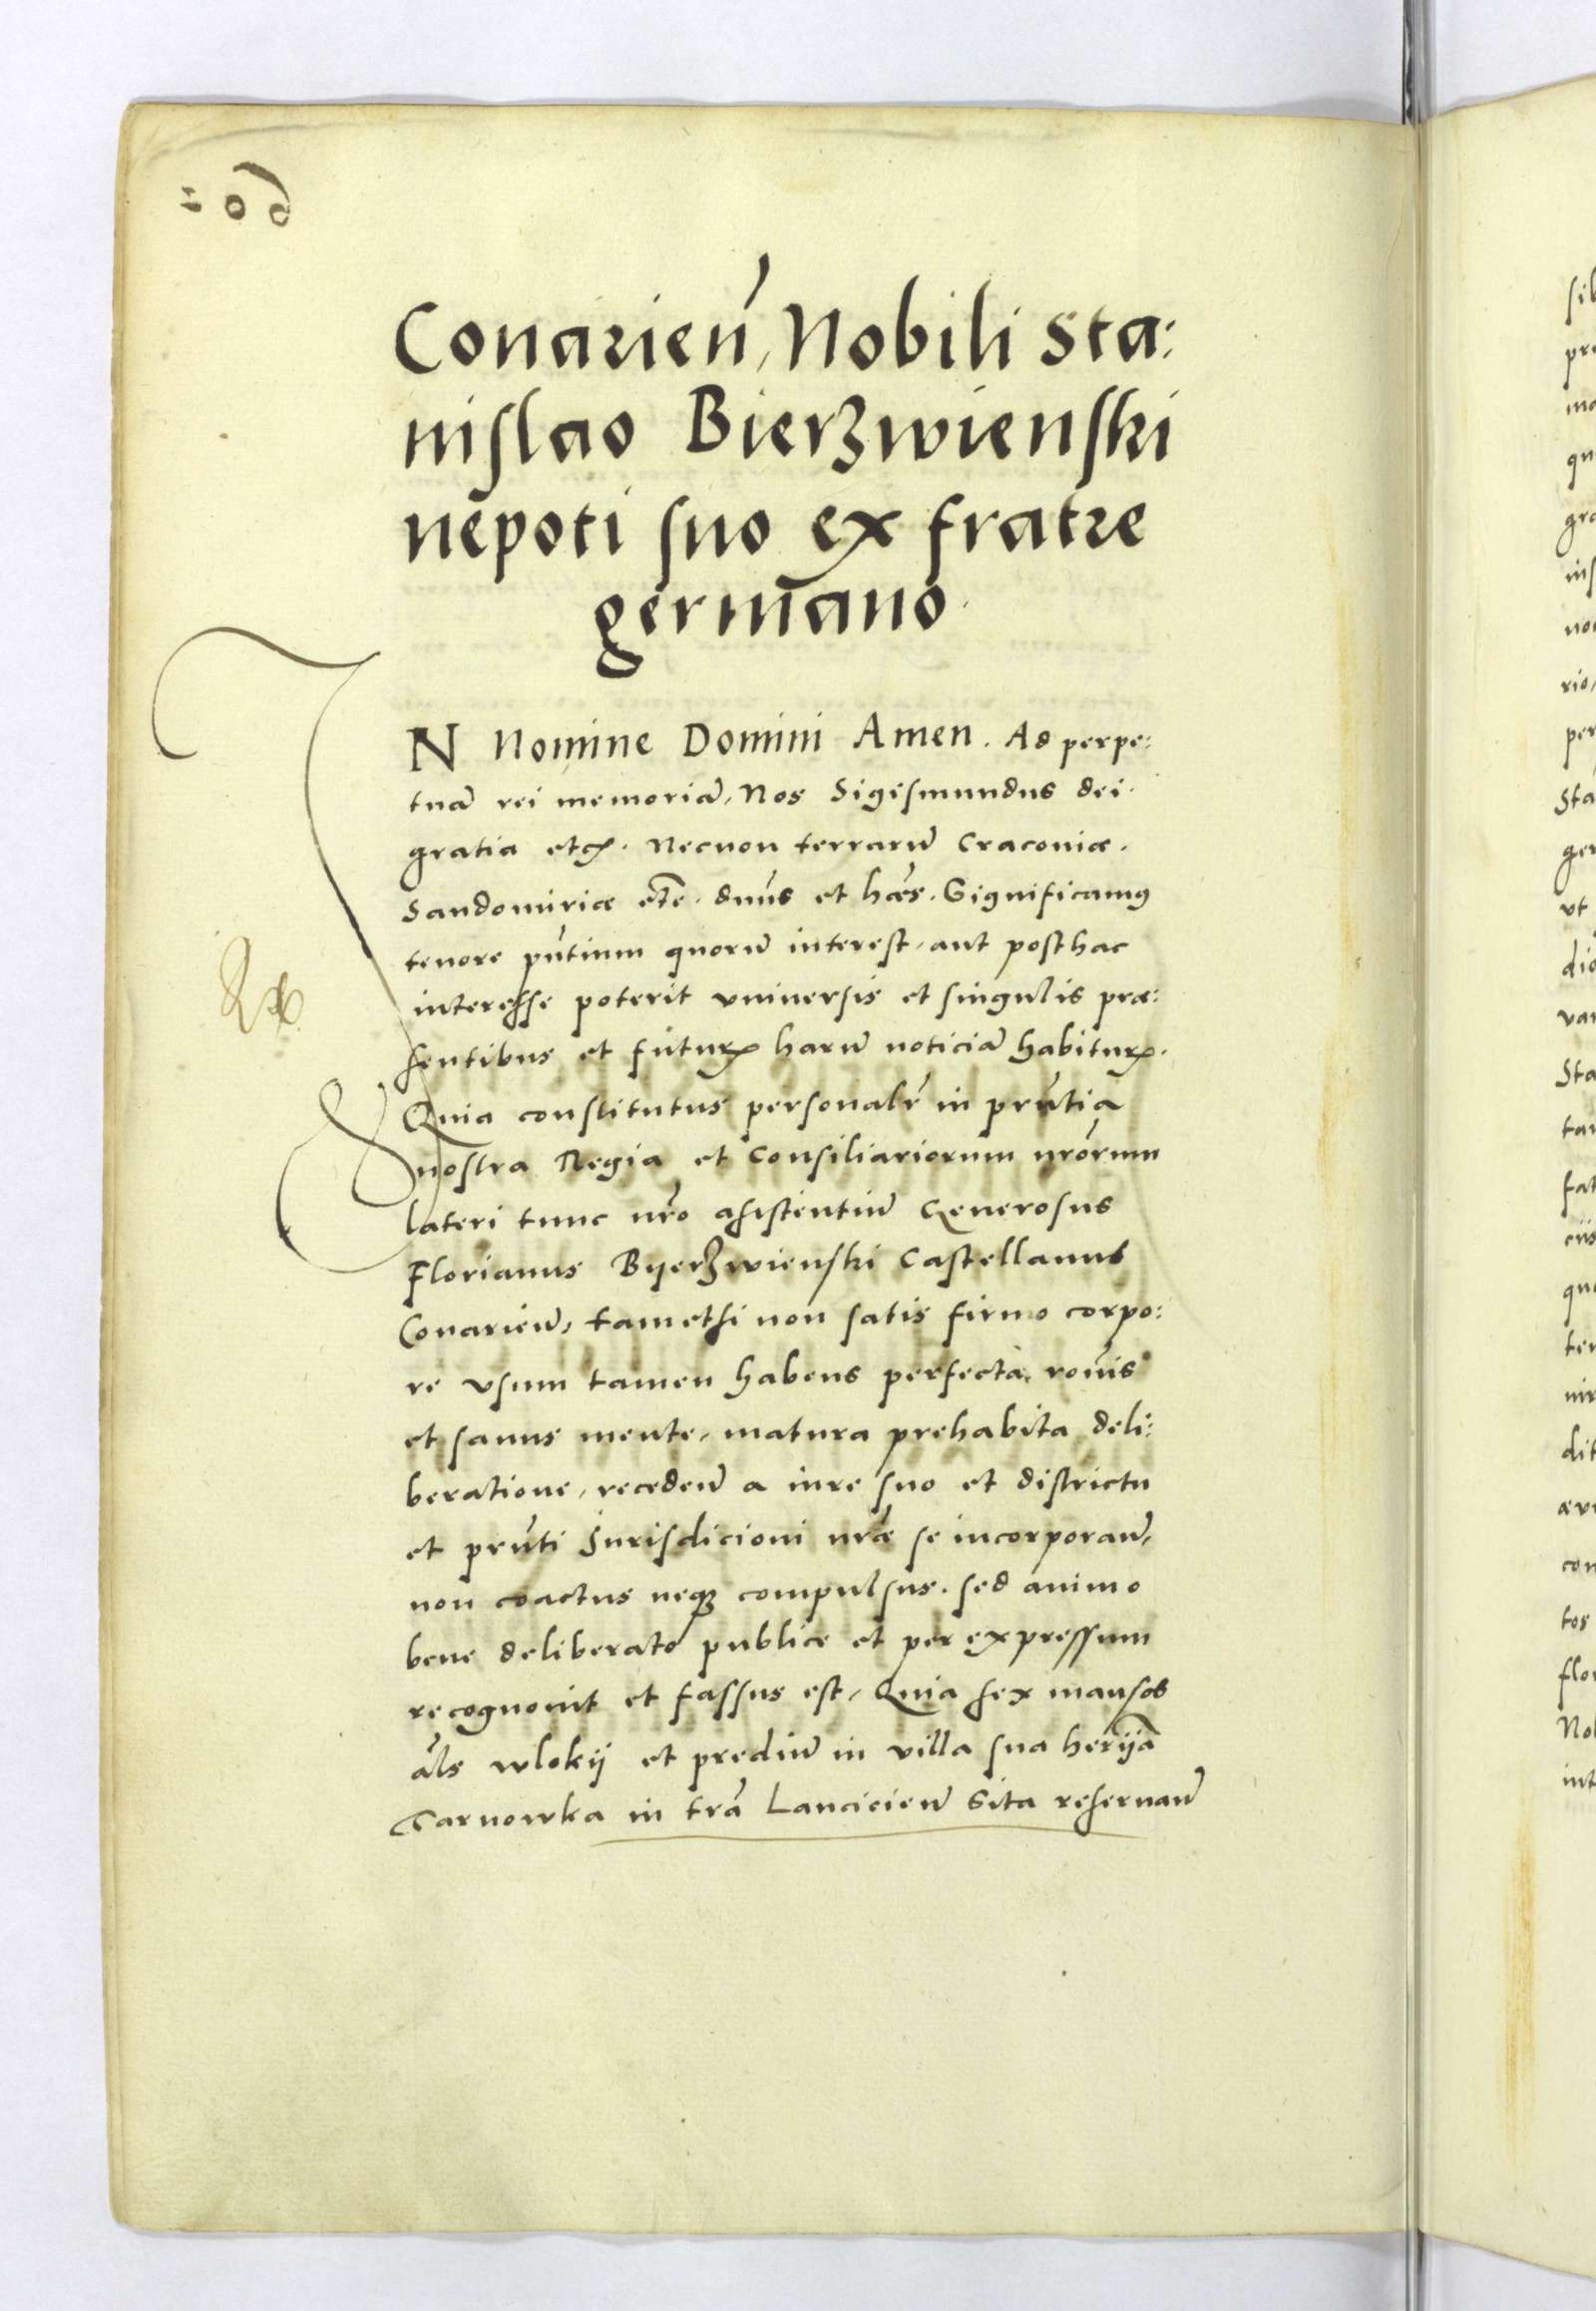 Conarien̄, Nobili Sta:
nislao Bierzwienski
nepoti suo ex fratre
germano.
IN Nomine Domini Amen. Ad perpe:
tuā rei memoriā, Nos Sigismundus dei.
gratia etcꝝ. Necnon terrarū Craconiæ.
Sandomiriæ etc̄. dnūs et hæs. Significamꝰ
tenore pn̄tium quorū interest, aut posthac
interesse poterit vniuersis et singulis præ:
sentibus et futurꝝ harū noticiā habiturꝝ.
Quia constitutus personalr̄ in prn̄tia
nostra Regia et Consiliariorum nrōrum
lateri tunc nrō assistentiū Generosus
Florianus Byerzwienski Castellanus
Conarien̄, tametsi non satis firmo corpo:
re vsum tamen habens perfectā rōnis
et sanus mente, matura prehabita deli:
beratione, receden̄ a iure suo et districtu
et prn̄ti Jurisdicioni nrǣ se incorporan̄,
non coactus neqꝫ compulsus. sed animo
bene deliberato publice et per expressum
recognouit et fassus est, Quia sex mansos
als̄ wlokij et prediū in villa sua herijā
Tarnowka in trā Lancicien̄ Sita reseruan̄